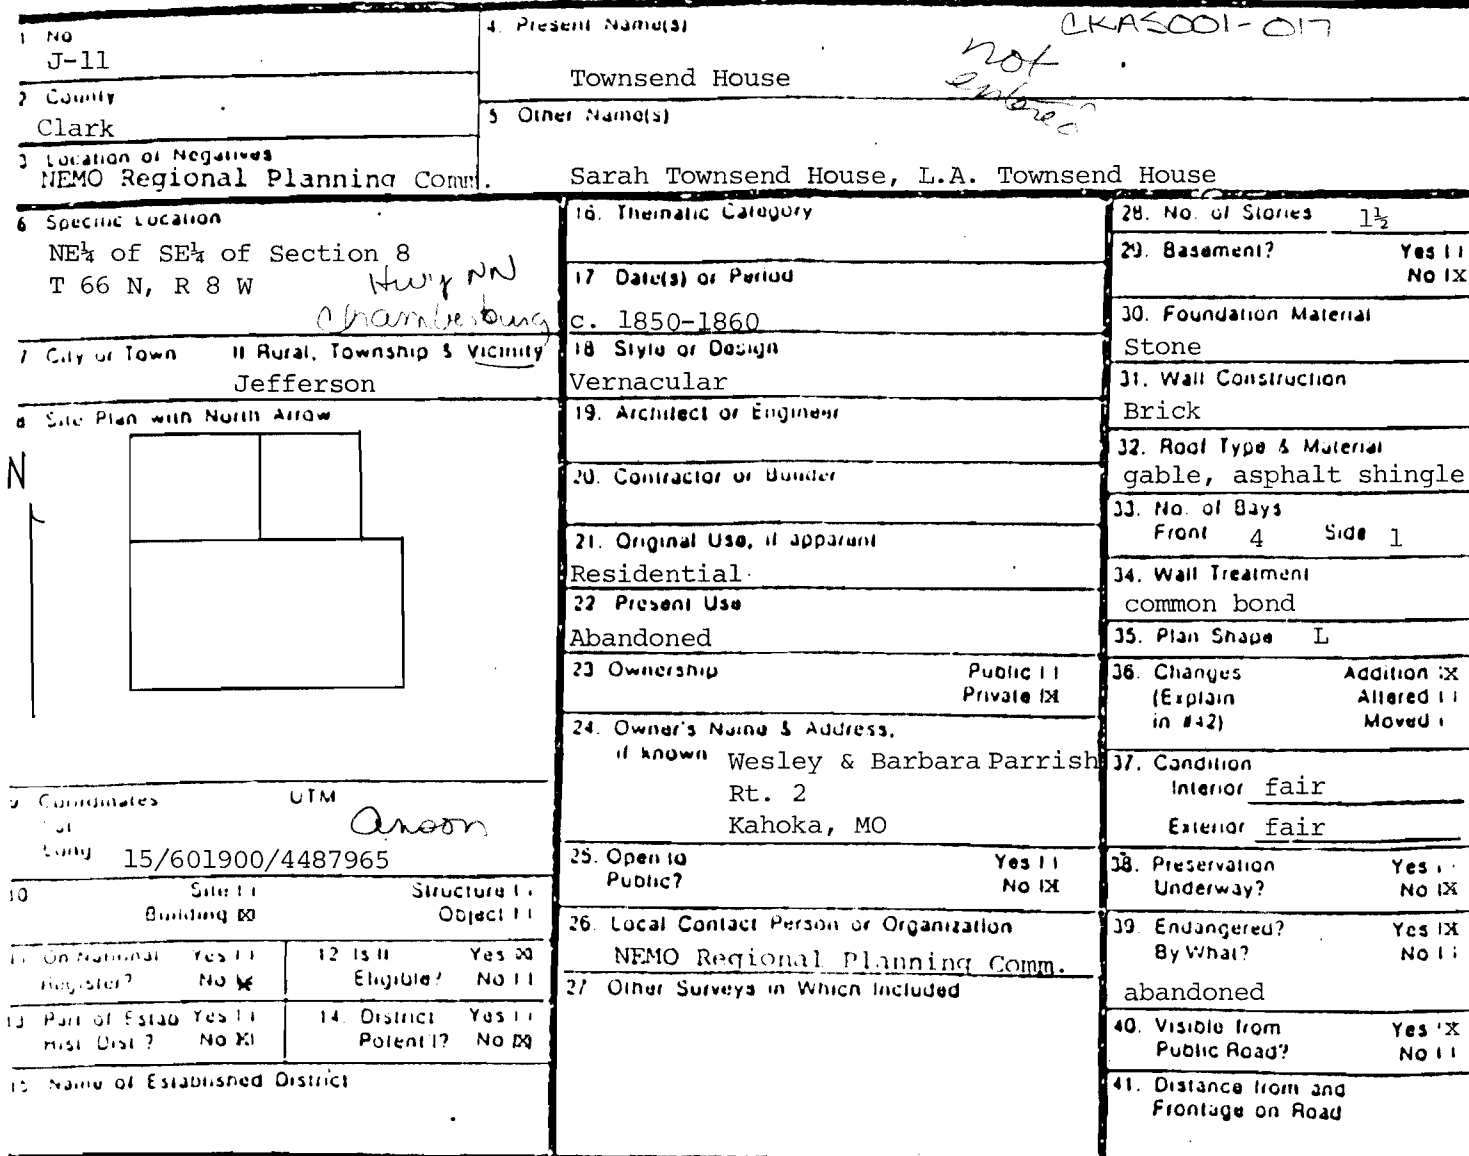 1 No
J-11
2 County
Clark
3 Location of Negatives
NEMO Regional Planning Comm.
4. Present Name(s)
CKAS001-017
not
entered
Townsend House
5 Other Name(s)
Sarah Townsend House, L.A. Townsend House
6 Specific Location
NE¼ of SE¼ of Section 8
T 66 N, R 8 W
Hwy NN
Chambersburg
7 City or Town If Rural, Township & Vicinity
Jefferson
8 Site Plan with North Arrow
N
9 Coordinates UTM
Lat
Long
15/601900/4487965
10 Site [ ] Structure [ ]
Building [X] Object [ ]
11 On National Register? Yes [ ] No [X]
12 Is it Eligible? Yes [X] No [ ]
13 Part of Estab Hist. Dist.? Yes [ ] No [X]
14. District Potent'l? Yes [ ] No [X]
15 Name of Established District
16. Thematic Category
17 Date(s) or Period
c. 1850-1860
18 Style or Design
Vernacular
19. Architect or Engineer
20. Contractor or Builder
21. Original Use, if apparent
Residential
22 Present Use
Abandoned
23 Ownership Public [ ]
Private [X]
24. Owner's Name & Address,
if known Wesley & Barbara Parrish
Rt. 2
Kahoka, MO
25. Open to Public? Yes [ ] No [X]
26. Local Contact Person or Organization
NEMO Regional Planning Comm.
27 Other Surveys in Which Included
28. No. of Stories 1½
29. Basement? Yes [ ]
No [X]
30. Foundation Material
Stone
31. Wall Construction
Brick
32. Roof Type & Material
gable, asphalt shingle
33. No. of Bays
Front 4 Side 1
34. Wall Treatment
common bond
35. Plan Shape L
36. Changes Addition [X]
(Explain Altered [ ]
in #42) Moved [ ]
37. Condition
Interior fair
Exterior fair
38. Preservation Underway? Yes [ ] No [X]
39. Endangered? Yes [X]
By What? No [ ]
abandoned
40. Visible from Public Road? Yes [X] No [ ]
41. Distance from and
Frontage on Road